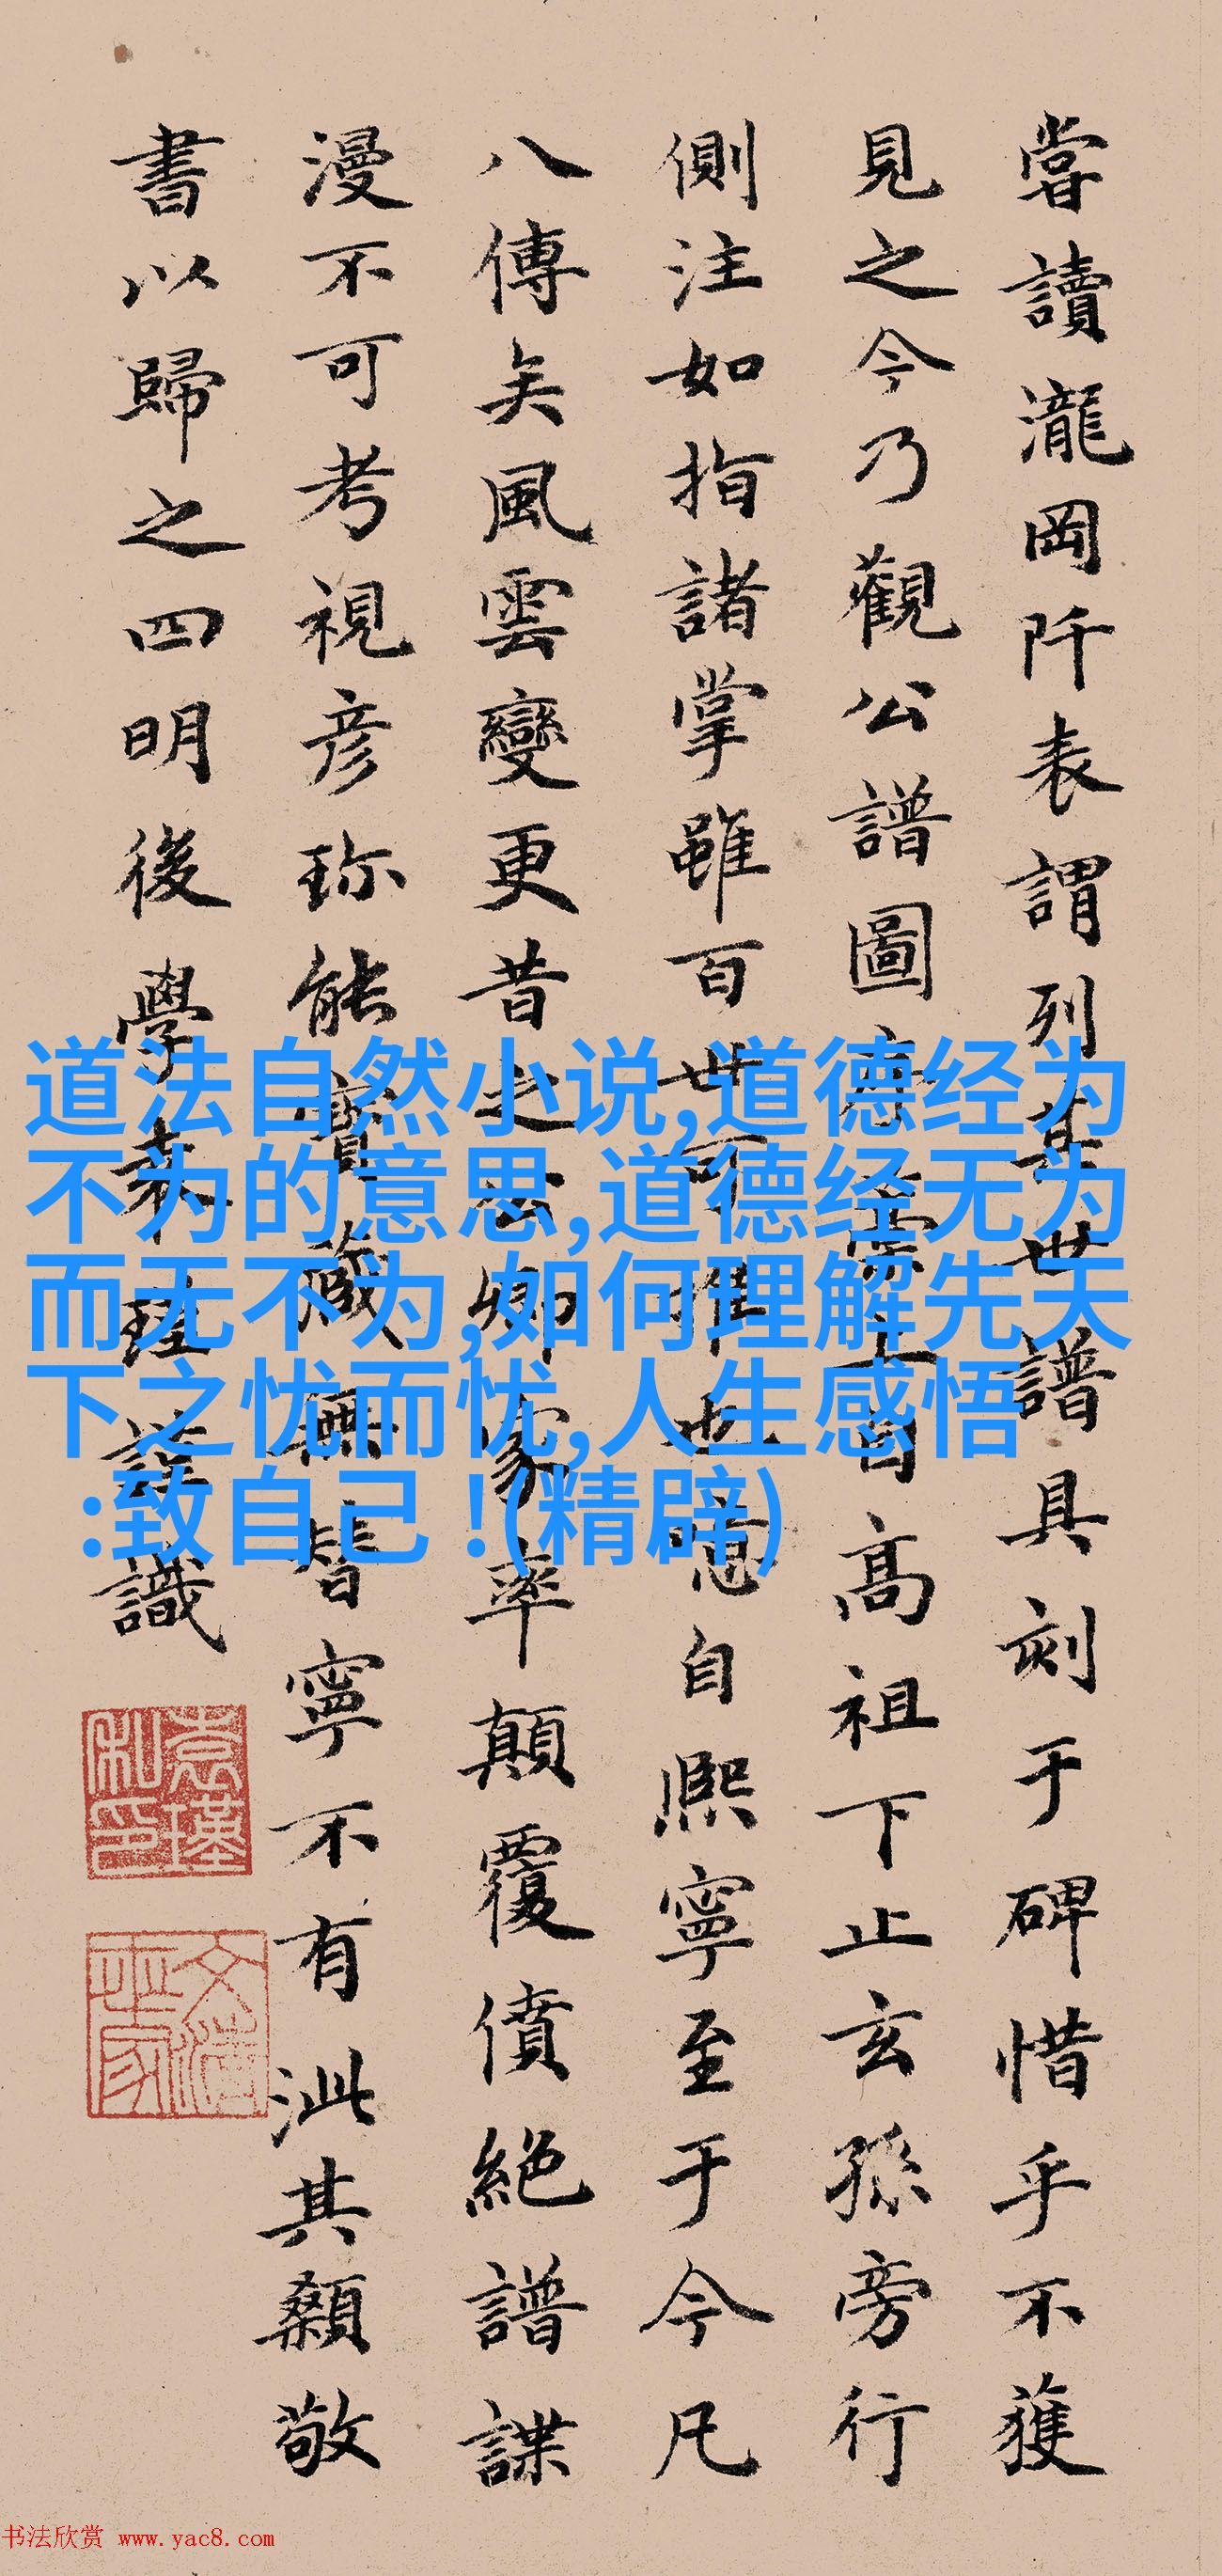 嘗讀瀧岡阡表謂列其世譜具刻于碑惜乎不獲
見之今乃觀公譜圖自高祖下止玄孫旁行
側注如指諸掌雖百世可推也噫自熙寧至于今凡
八傳矣風雲變更昔之公卿家率顛覆僨絕譜諜
漫不可考視彥珍能寶藏無替寧不有泚其顙敬
書以歸之四明後學袁瑾謹識
袁瑾私印
文清世家
道法自然小说,道德经为
不为的意思,道德经无为
而无不为,如何理解先天
下之忧而忧,人生感悟
:致自己！(精辟)
书法欣赏 www.yac8.com